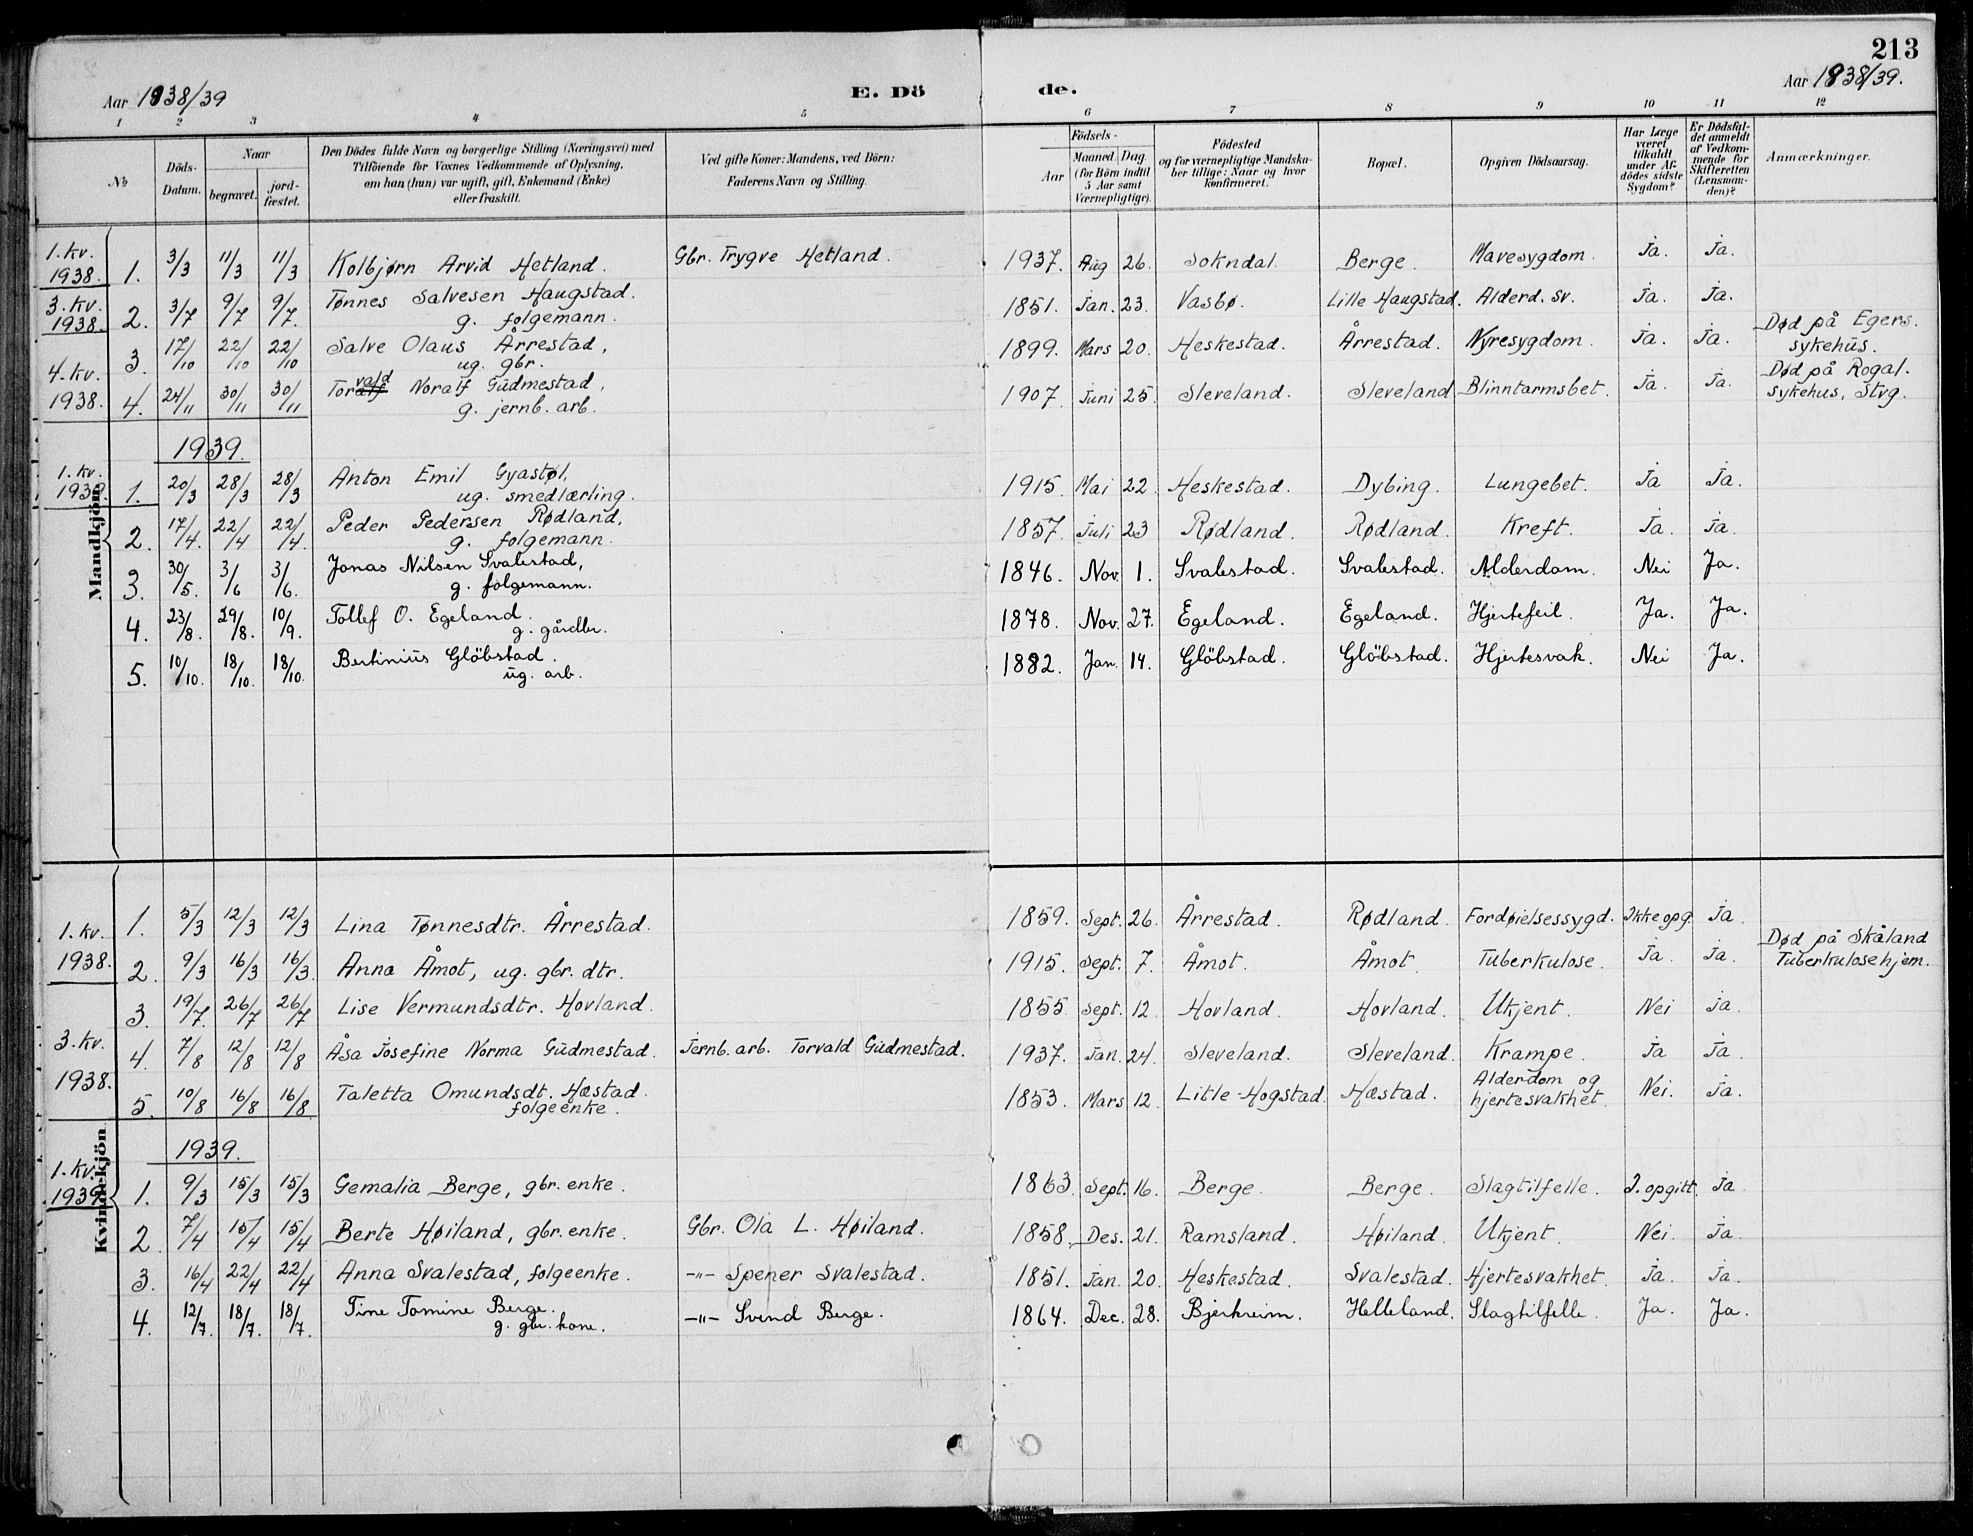 213
Aar 1938/39 E. Dö de. Aar 1938/39.
1 2 3 4 5 6 7 8 9 10 11 12
No Döds-Datum. Naar begravet. jord-fæstet. Den Dödes fulde Navn og borgerlige Stilling (Næringsvei) med Tilföiende for Voxnes Vedkommende af Oplysning, om han (hun) var ugift, gift, Enkemand (Enke) eller fraskilt. Ved gifte Koner: Mandens, ved Börn: Faderens Navn og Stilling. Födsels- Aar Maaned. Dag (for Börn indtil 5 Aar samt Værnepligtige). Födested og for værnepligtige Mandska-ber tillige: Naar og hvor konfirmeret. Bopæl. Opgiven Dödsaarsag. Har Læge været tilkaldt under Af-dödes sidste Sygdom? Er Dödsfal-det anmeldt af Vedkom-mende for Skifteretten (Lensman-den)? Anmærkninger.
Mandkjön
1. kv. 1938. 1. 3/3 11/3 11/3 Kolbjørn Arvid Hetland. Gbr. Trygve Hetland. 1937. Aug 26. Sokndal. Berge. Mavesygdom. Ja. Ja.
3. kv. 1938. 2. 3/7 9/7 9/7. Tønnes Salvesen Haugstad. g. folgemann. 1851. Jan. 23. Vasbø. Lille Haugstad. Alderd. sv. Ja. Ja.
3. 17/10 22/10 22/10 Salve Olaus Årrestad, ug. gbr. 1899. Mars 20. Heskestad. Årrestad. Nyresygdom. Ja. Ja. Død på Egers. sykehus.
4. kv. 1938. 4. 24/11 30/11 30/11 Toralf vald Noralf Gudmestad, g. jernb. arb. 1907. Juni 25. Sleveland. Sleveland Blinntarmsbet. Ja. Ja. Død på Rogal. sykehus, Stvg.
1939.
1. kv. 1939. 1. 20/3 28/3 28/3 Anton Emil Gyastøl, ug. smedlærling. 1915. Mai 22. Heskestad. Dybing. Lungebet. Ja Ja.
2. 17/4. 22/4 22/4. Peder Pedersen Rødland, g. folgemann. 1857. Juli 23 Rødland. Rødland. Kreft. Ja. Ja.
3. 30/5. 3/6 3/6. Jonas Nilsen Svalestad, g. folgemann. 1846. Nov. 1. Svalestad. Svalestad. Alderdom. Nei Ja.
4. 23/8. 29/8. 10/9. Tollef O. Egeland. g. gårdbr. 1878. Nov. 27. Egeland. Egeland. Hjertefeil. Ja. Ja.
5. 10/10. 18/10. 18/10. Bertinius Glöbstad. ug. arb. 1882. Jan. 14. Glöbstad. Glöbstad. Hjertesvak. Nei Ja.
Kvindekjön
1. kv. 1938. 1. 5/3 12/3 12/3 Lina Tønnesdtr. Årrestad. 1859. Sept. 26. Årrestad. Rødland. Fordøielsessygd. Ikke opg. Ja.
2. 9/3 16/3 16/3 Anna Åmot, ug. gbr. dtr. 1915. Sept. 7. Åmot. Åmot. Tuberkulose. Ja. Ja. Død på Skåland Tuberkulosehjem.
3. 19/7. 26/7 26/7 Lise Vermundsdtr. Hovland. 1855. Sept. 12. Hovland. Hovland. Ukjent. Nei Ja.
3. kv. 1938. 4. 7/8 12/8 12/8 Åsa Josefine Norma Gudmestad. Jernb. arb. Torvald Gudmestad. 1937. Jan. 24. Sleveland. Sleveland. Krampe. Ja Ja.
5. 10/8 16/8 16/8 Taletta Omundsdt. Hæstad. folgeenke. 1853. Mars 12. Litle-Hogstad. Hæstad. Alderdom og hjertesvakhet. Nei. Ja.
1939.
1. kv. 1939. 1. 9/3 15/3 15/3 Gemalia Berge, gbr. enke. 1863. Sept. 16. Berge. Berge. Slagtilfelle. I. opgitt. Ja.
2. 7/4 15/4 15/4 Berte Høiland, gbr. enke. Gbr. Ola L. Høiland. 1858. Des. 21. Ramsland. Høiland. Ukjent. Nei. Ja.
3. 16/4 22/4 22/4 Anna Svalestad, folgeenke. —"— Spener Svalestad. 1851. Jan. 20. Heskestad. Svalestad. Hjertesvakhet. Ja. Ja.
4. 12/7. 18/7. 18/7. Tine Tomine Berge. g. gbr. kone. —"— Svend Berge. 1864. Dec. 28. Bjerkreim. Helleland. Slagtilfelle. Ja. Ja.